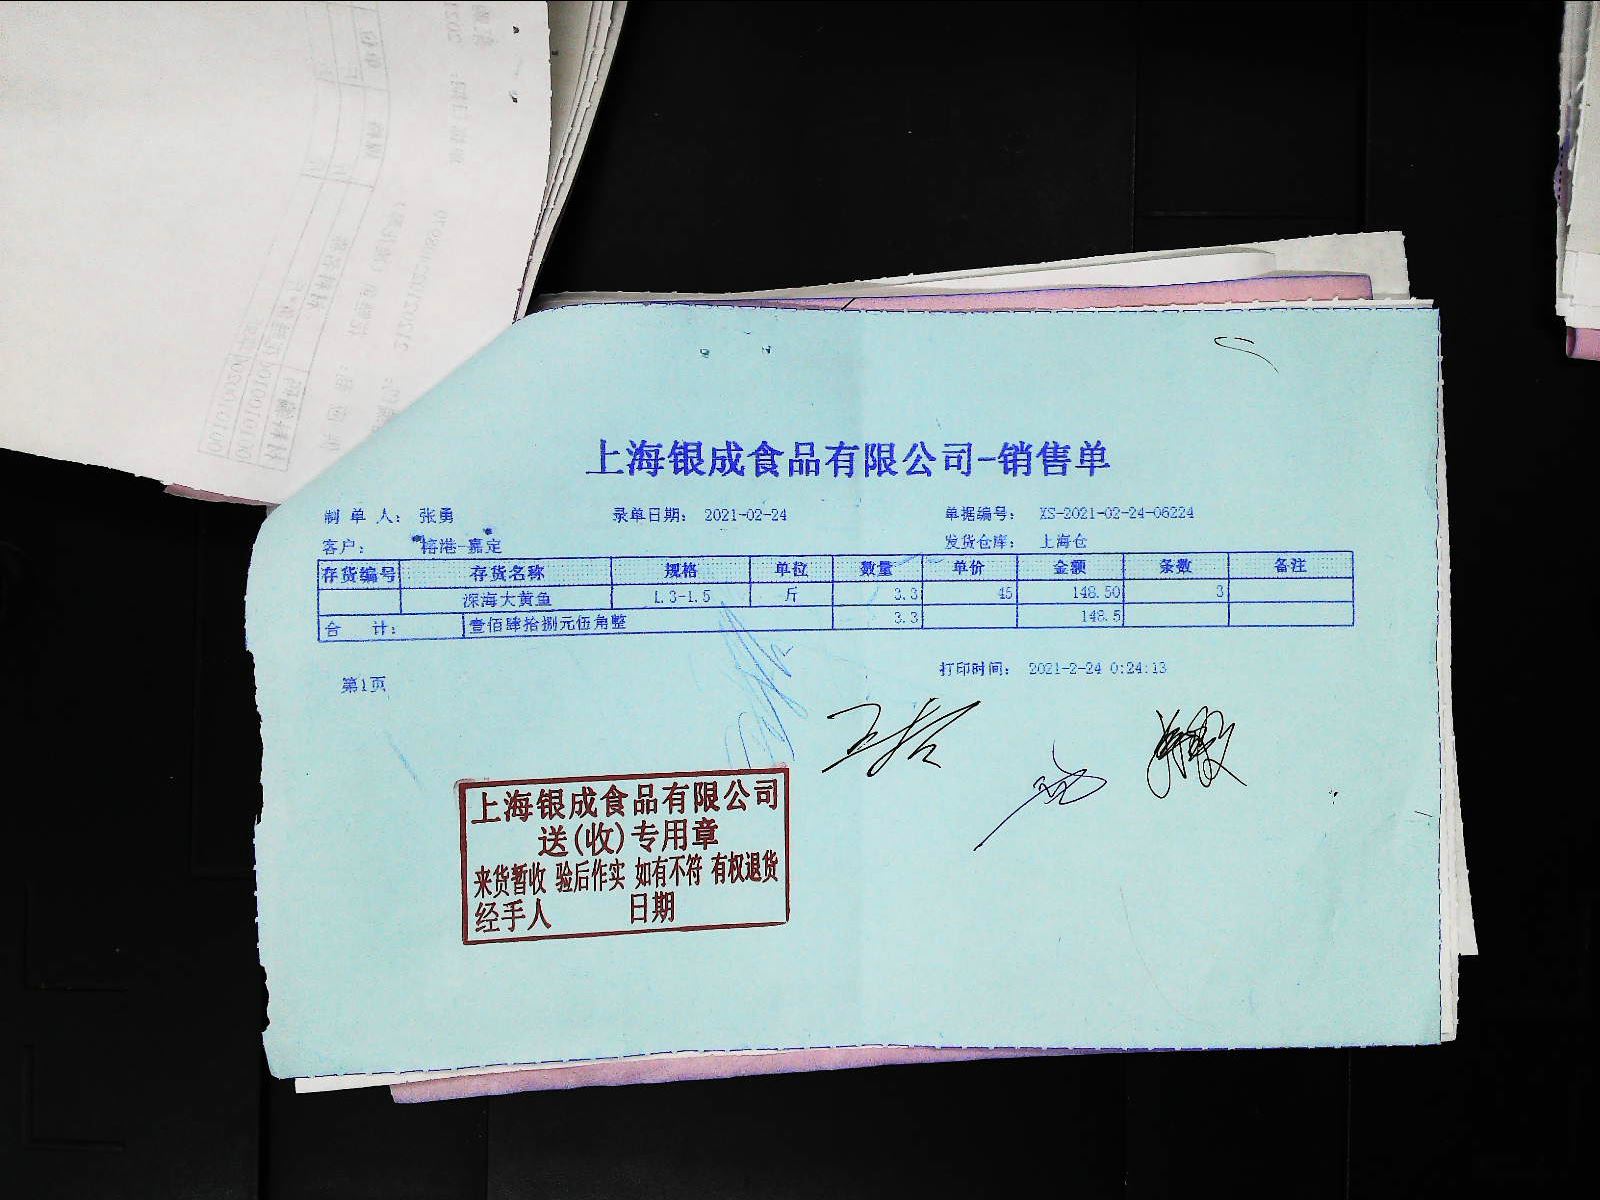 上海银成食品有限公司-销售单
制 单 人： 张勇 录单日期： 2021-02-24 单据编号： XS-2021-02-24-06224
客户： 榕港-嘉定 发货仓库： 上海仓
存货编号 存货名称 规格 单位 数量 单价 金额 条数 备注
深海大黄鱼 1.3-1.5 斤 3.3 45 148.50 3
合 计： 壹佰肆拾捌元伍角整 3.3 148.5
第1页 打印时间： 2021-2-24 0:24:13
上海银成食品有限公司
送(收)专用章
来货暂收 验后作实 如有不符 有权退货
经手人 日期